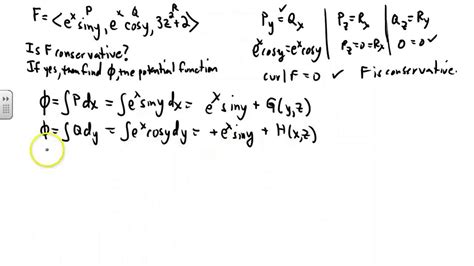 F = <e^x sin y, e^x cos y, 3z^2 + 2>
P Q R
Is F conservative?
If yes, then find ϕ, the potential function
P_y = Q_x ✓ | P_z = R_x | Q_z = R_y
e^x cos y = e^x cos y | P_z = 0 = R_x | 0 = 0 ✓
curl F = 0 ✓ F is conservative.
ϕ = ∫ P dx = ∫ e^x sin y dx = e^x sin y + G(y, z)
ϕ = ∫ Q dy = ∫ e^x cos y dy = + e^x sin y + H(x, z)